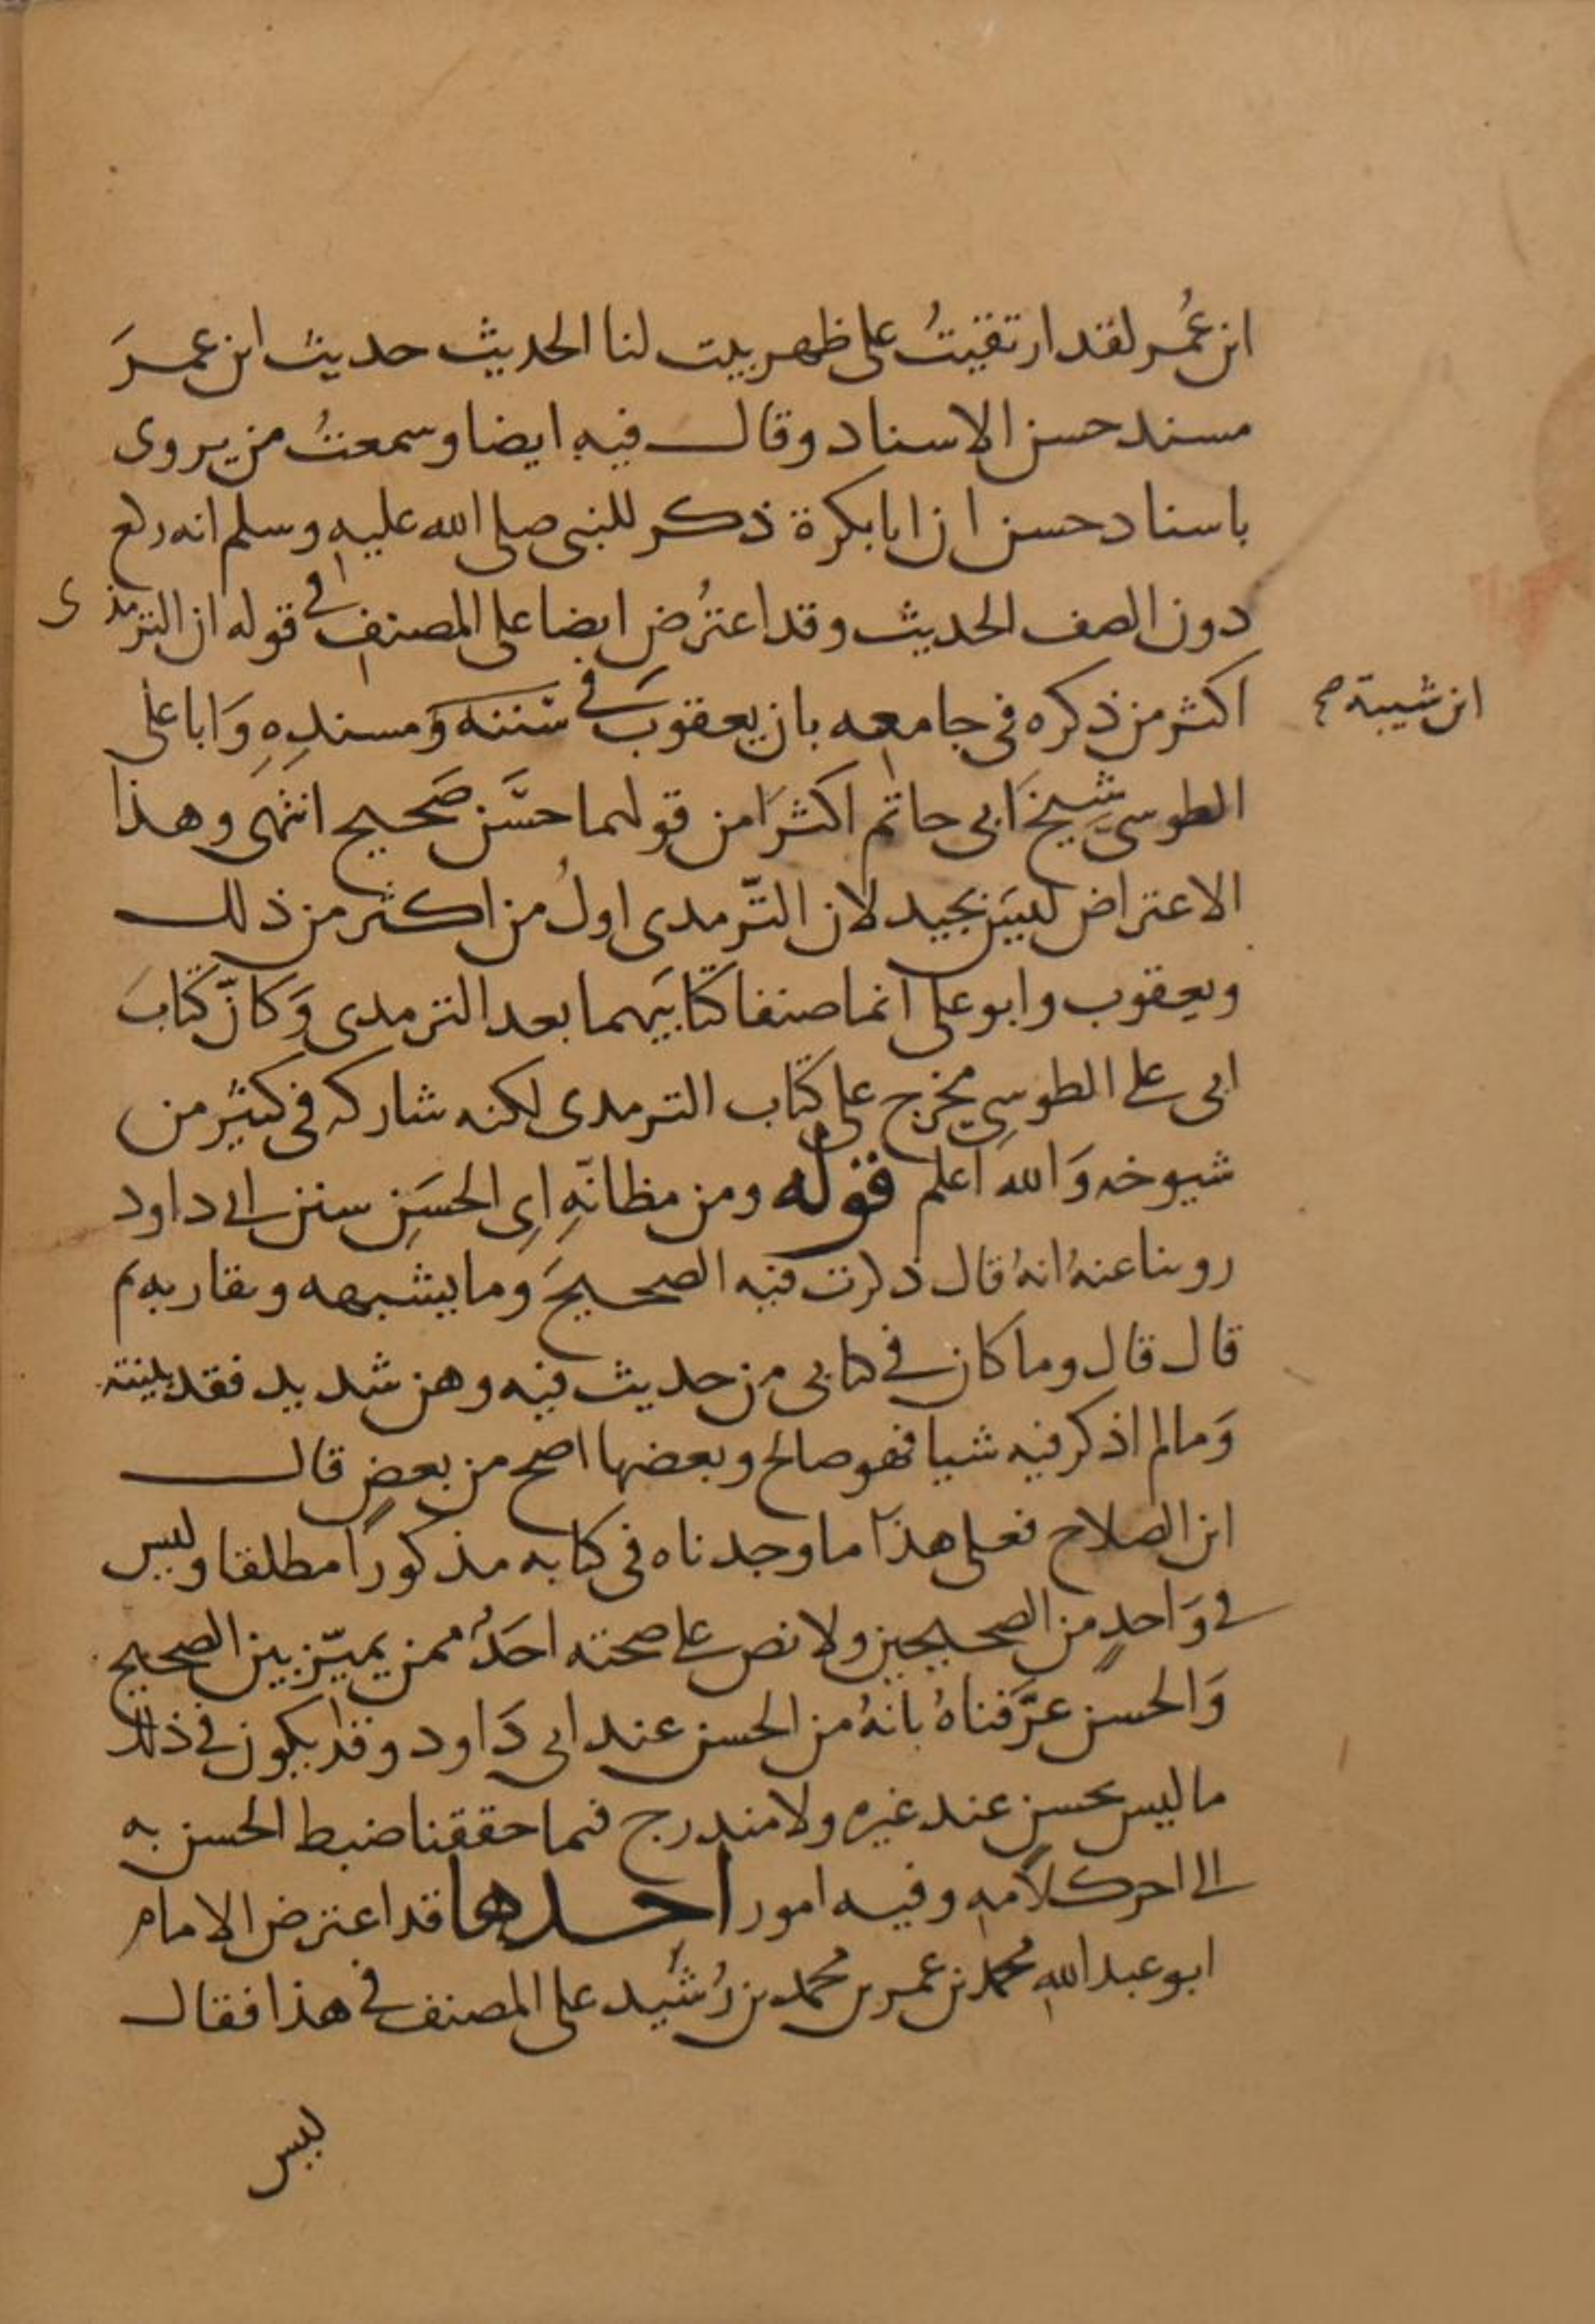 ابن عُمر لقد ارتقيتُ على ظهر بيت لنا الحديث حديث ابن عمرَ
مسند حسن الاسناد وقال فيه ايضا وسمعتُ من يروى
باسناد حسن ان ابا بكرة ذكر للنبى صلى الله عليه وسلم انه ركع
دون الصف الحديث وقد اعتُرض ايضا على المصنف فى قوله ان الترمذى
اكثر من ذكره فى جامعه بان يعقوبَ فى سننه وَمسندِهِ وَابا على
ابن شيبة صح
الطوسىِّ شيخَ ابى حاتم اكثرَا من قولهما حسَن صَحيح انتهى وهذا
الاعتراض ليسَ بجيد لان التّرمدى اولُ من اكثر من ذلك
ويعقوب وابو على انما صنفا كتابَيهما بعد الترمدى وَكانّ كتابَ
ابى على الطوسىِ مخرج على كتاب الترمدى لكنه شاركه فى كثيْر من
شيوخه وَالله اعلم قوله ومن مظانّهِ اىِ الحسَنِ سنن ابى داود
روينا عنهُ انهُ قال ذكرت فيه الصحيحَ وما يشبهه ويقاربه ثم
قال قال وما كان فى كتابى من حديث فيه وهن شديد فقد بينته
وَمالم اذكر فيه شيا فهو صالح وبعضها اصح من بعضٍ قال
ابن الصلاح فعلى هذا ما وجدناه فى كتابه مذكورًا مطلقا وليس
فى وَاحدٍ من الصحيحين ولا نص على صحته احَدٌ ممن يميّز بين الصحيح
وَالحسن عرَّفناهُ بانهُ من الحسن عند ابى دَاود وقد يكون فى ذلك
ما ليس بحسن عند غيره ولا مندرج فيما حققنا ضبط الحسن به
الى اخر كلامه وفيه امور احدها قد اعترض الامام
ابو عبد الله محمد بن عمر بن محمد بن رُشَيد على المصنف فى هذا فقال
ليس